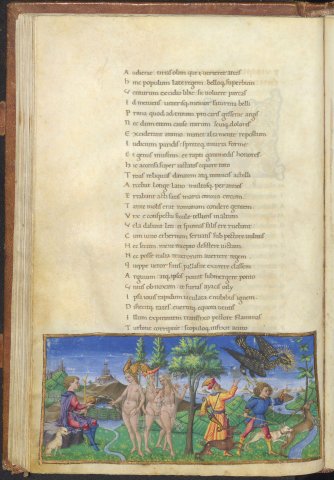 A udierat tirias olim que verteret arces
H inc populum late regem belloq; superbum
V enturum excidio libie. sic voluere parcas
I d metuens veterisq; memor saturnia belli
P rima quod ad troiam pro caris gesserat argis
N ec dum etiam cause irarum seuiq; dolores
E xciderant animo. manet alta mente repostum
I udicium paridis spreteq; iniuria forme
E t genus inuisum et rapti ganimedis honores
H is accensa super iactatos equore toto
T roas reliquias danaum atq; inmitis achilli
A rcebat longe latio multosq; per annos
E rrabant acti fatis maria omnia circum
T ante molis erat romanam condere gentem
V ix e conspectu sicule telluris in altum
V ela dabant leti et spumas salis ere ruebant
C um iuno eternum seruans sub pectore vulnus
H ec secum mene incepto desistere victam
N ec posse italia teucrorum auertere regem
Q uippe vetor fatis pallasne exurere classem
A rgiuum atq; ipsos potuit submergere ponto
V nius ob noxam et furias aiacis oilei
I psa iouis rapidum iaculata e nubibus ignem
D isiecitq; rates euertitq; equora ventis
I llum expirantem transfixo pectore flammas
T urbine corripuit scopuloq; infixit acuto